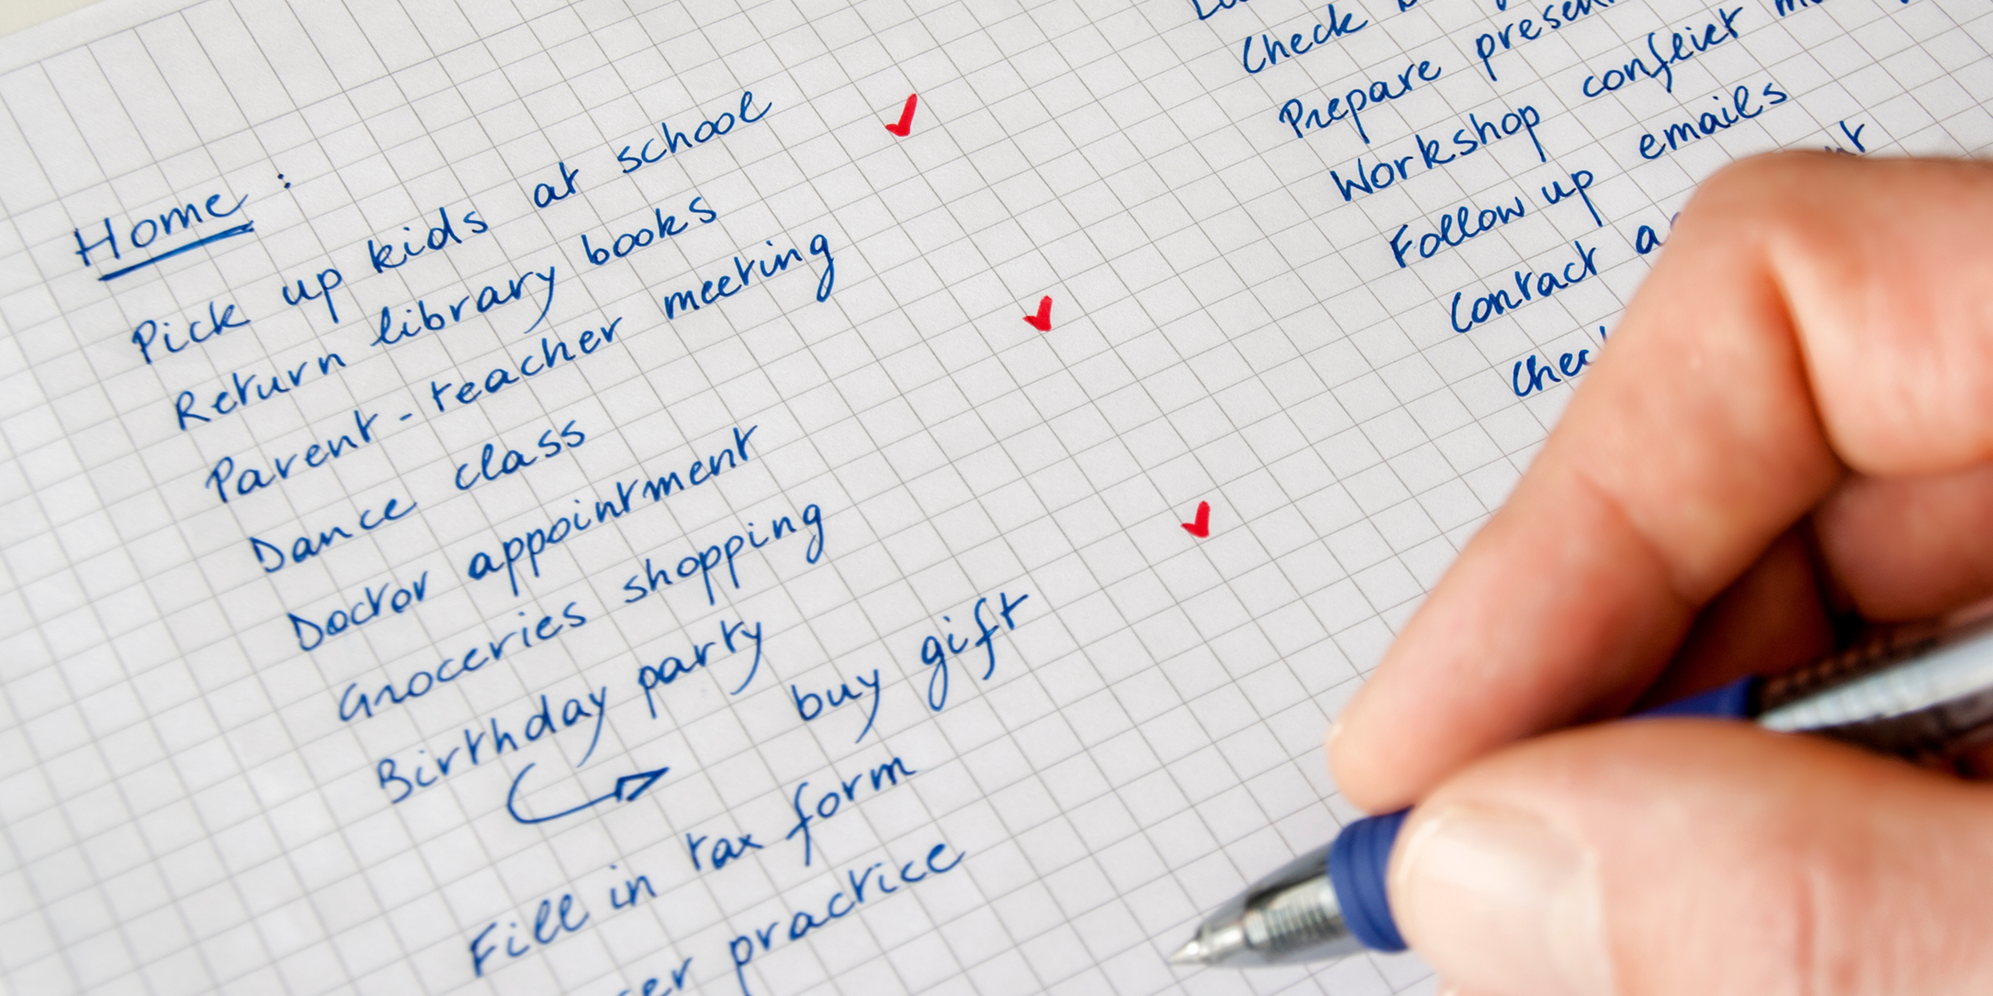 Home :
Pick up kids at school ✓
Return library books
Parent - teacher meeting ✓
Dance class
Doctor appointment
Groceries shopping ✓
Birthday party
buy gift
Fill in tax form
practice
Check
Prepare
Workshop conflict
Follow up emails
Contact